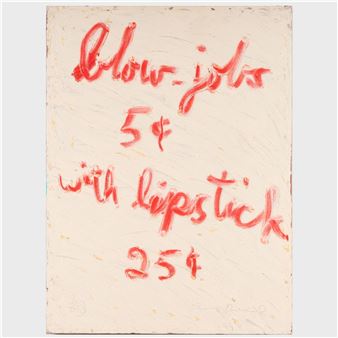 blow-jobs
5¢
with lipstick
25¢